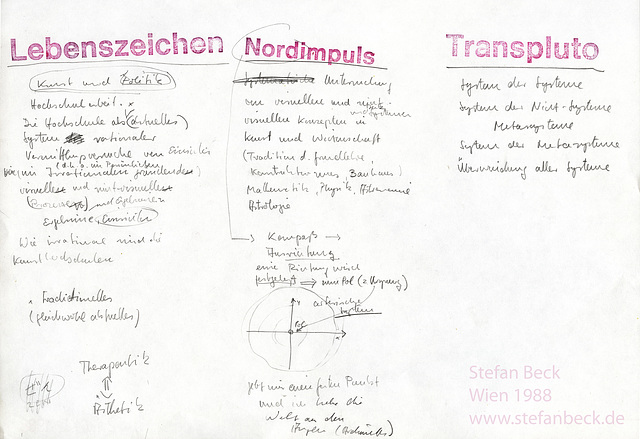 Lebenszeichen
Kunst und Politik
Hochschularbeit. x
Die Hochschule als (aktuelles)
System rationaler
Vermittlungsversuche von
Irrationalem
visuelles und nichtvisuelles
und
Ergebnisse
Wie irrational sind die
Kunsthochschulen
x Traditionelles
(gleichwohl aktuelles)
Therapeutik
Ästhetik
Nordimpuls
Systematische Untersuchung
von visuellen und nicht-
visuellen Konzepten in
und Systemen
Kunst und Wissenschaft
(Tradition d. Farbenlehre,
Konstruktivismus, Bauhaus)
Mathematik, Physik, Astronomie
Astrologie
Kompaß
Ausrichtung
eine Richtung wird
festgelegt zum Pol (= Ursprung)
y
cartesisches
System
Pol
x
gebt mir einen festen Punkt
und ich hebe die
Welt aus den
Angeln (Archimedes)
Transpluto
System der Systeme
System der Nicht-Systeme
Metasysteme
System der Metasysteme
Überwindung aller Systeme
Stefan Beck
Wien 1988
www.stefanbeck.de